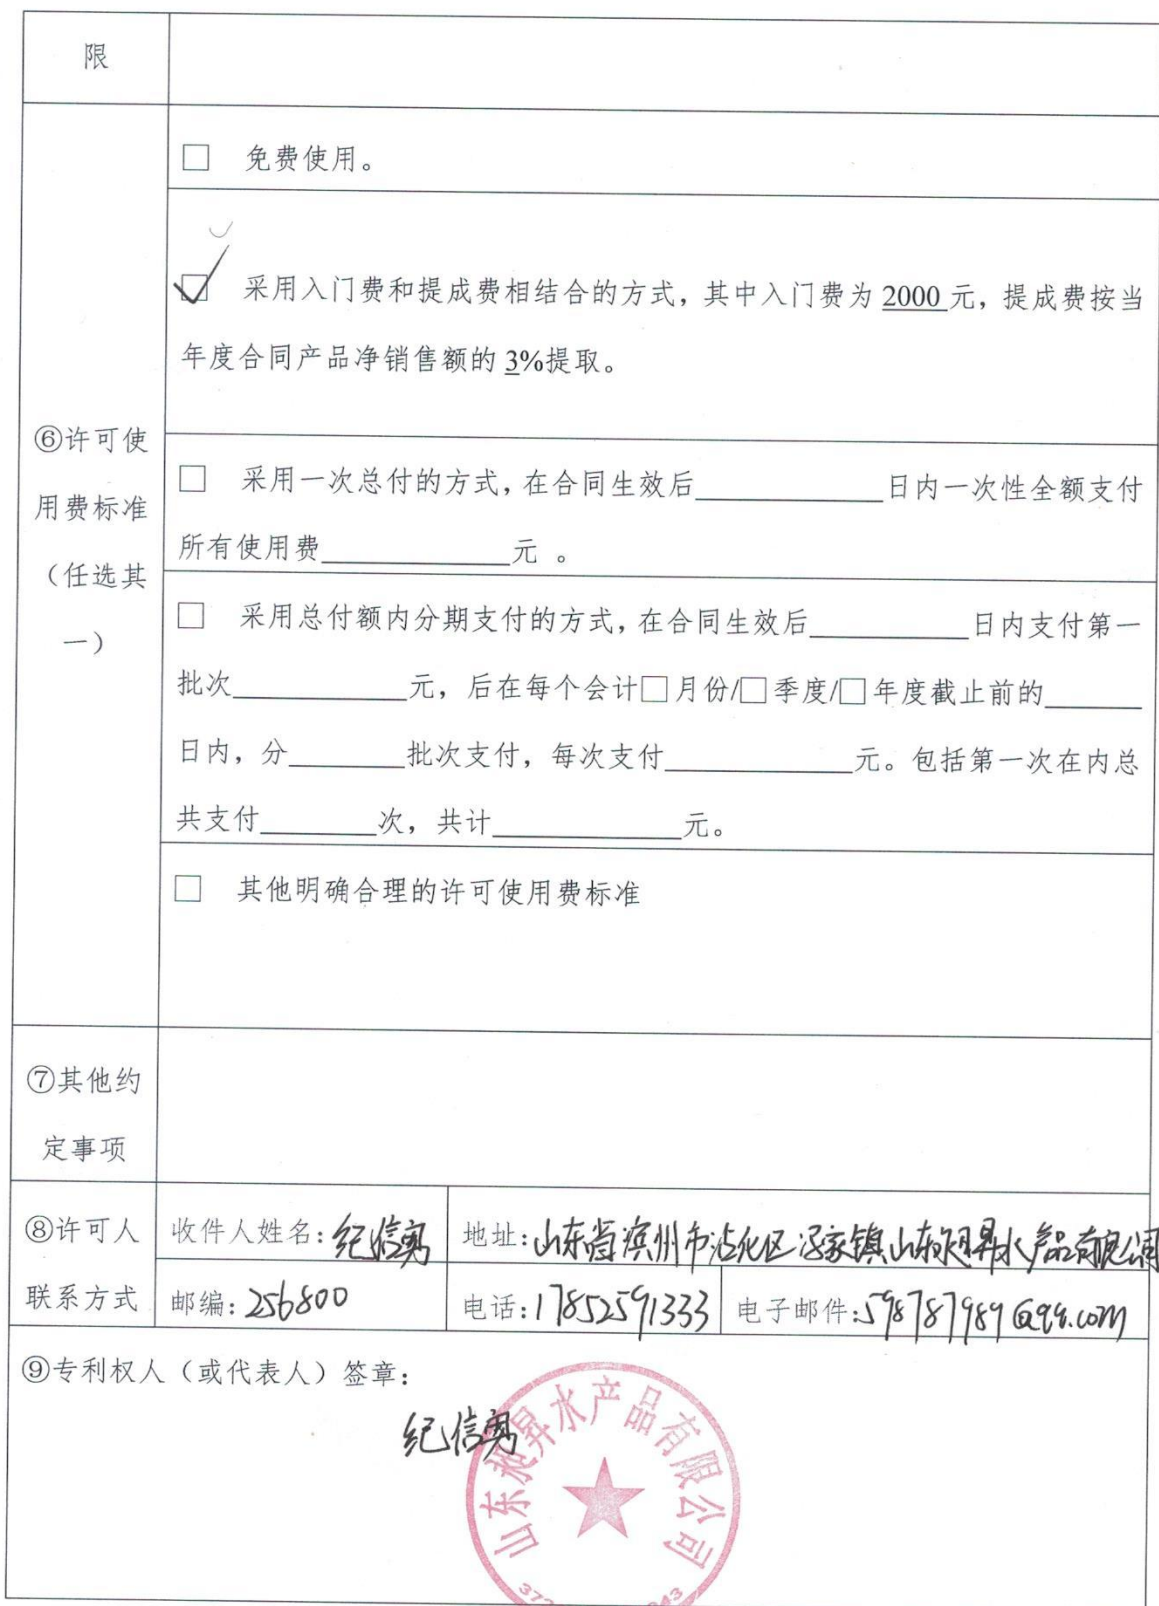 限
□ 免费使用。
☑ 采用入门费和提成费相结合的方式，其中入门费为 2000 元，提成费按当
年度合同产品净销售额的 3%提取。
⑥许可使
用费标准
（任选其
一）
□ 采用一次总付的方式，在合同生效后____________日内一次性全额支付
所有使用费____________元 。
□ 采用总付额内分期支付的方式，在合同生效后__________日内支付第一
批次___________元，后在每个会计□月份/□季度/□年度截止前的______
日内，分_______批次支付，每次支付____________元。包括第一次在内总
共支付_______次，共计____________元。
□ 其他明确合理的许可使用费标准
⑦其他约
定事项
⑧许可人
联系方式
收件人姓名：纪信勇
地址：山东省滨州市沾化区冯家镇山东昶昇水产品有限公司
邮编：256800
电话：17852591333
电子邮件：598787989@qq.com
⑨专利权人（或代表人）签章：
纪信勇
山东昶昇水产品有限公司